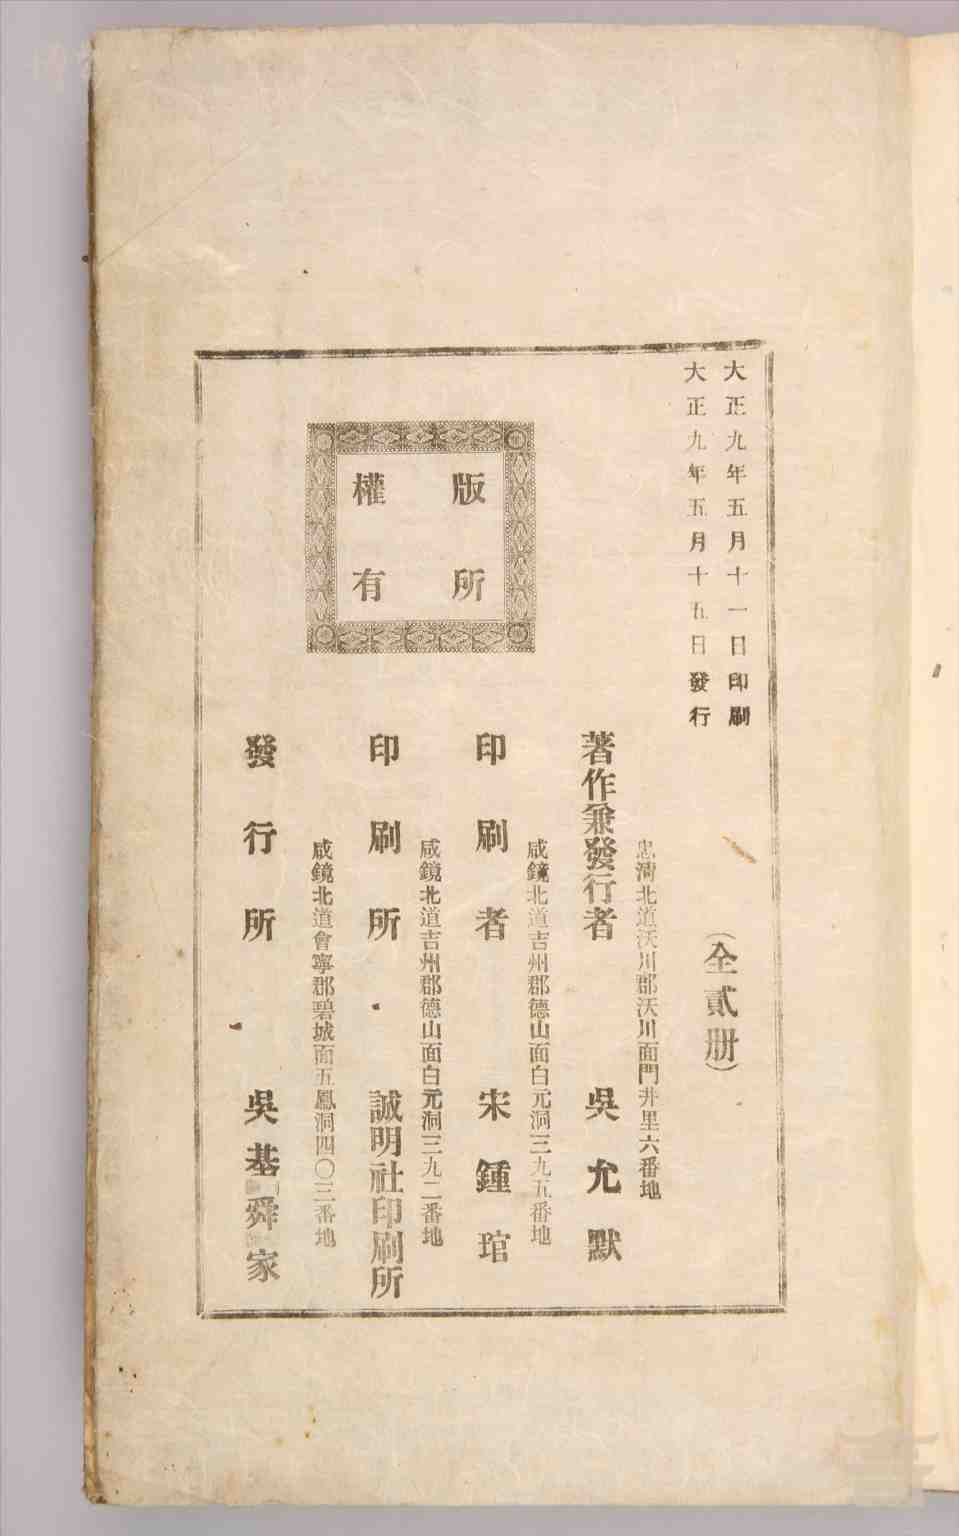 大正九年五月十一日印刷
大正九年五月十五日發行
(全貳册)
版所
權有
忠淸北道沃川郡沃川面門井里六番地
著作兼發行者 吳允默
咸鏡北道吉州郡德山面白元洞三九五番地
印刷者 宋鍾琯
咸鏡北道吉州郡德山面白元洞三九二番地
印刷所 誠明社印刷所
咸鏡北道會寧郡碧城面五鳳洞四〇三番地
發行所 吳基舜家